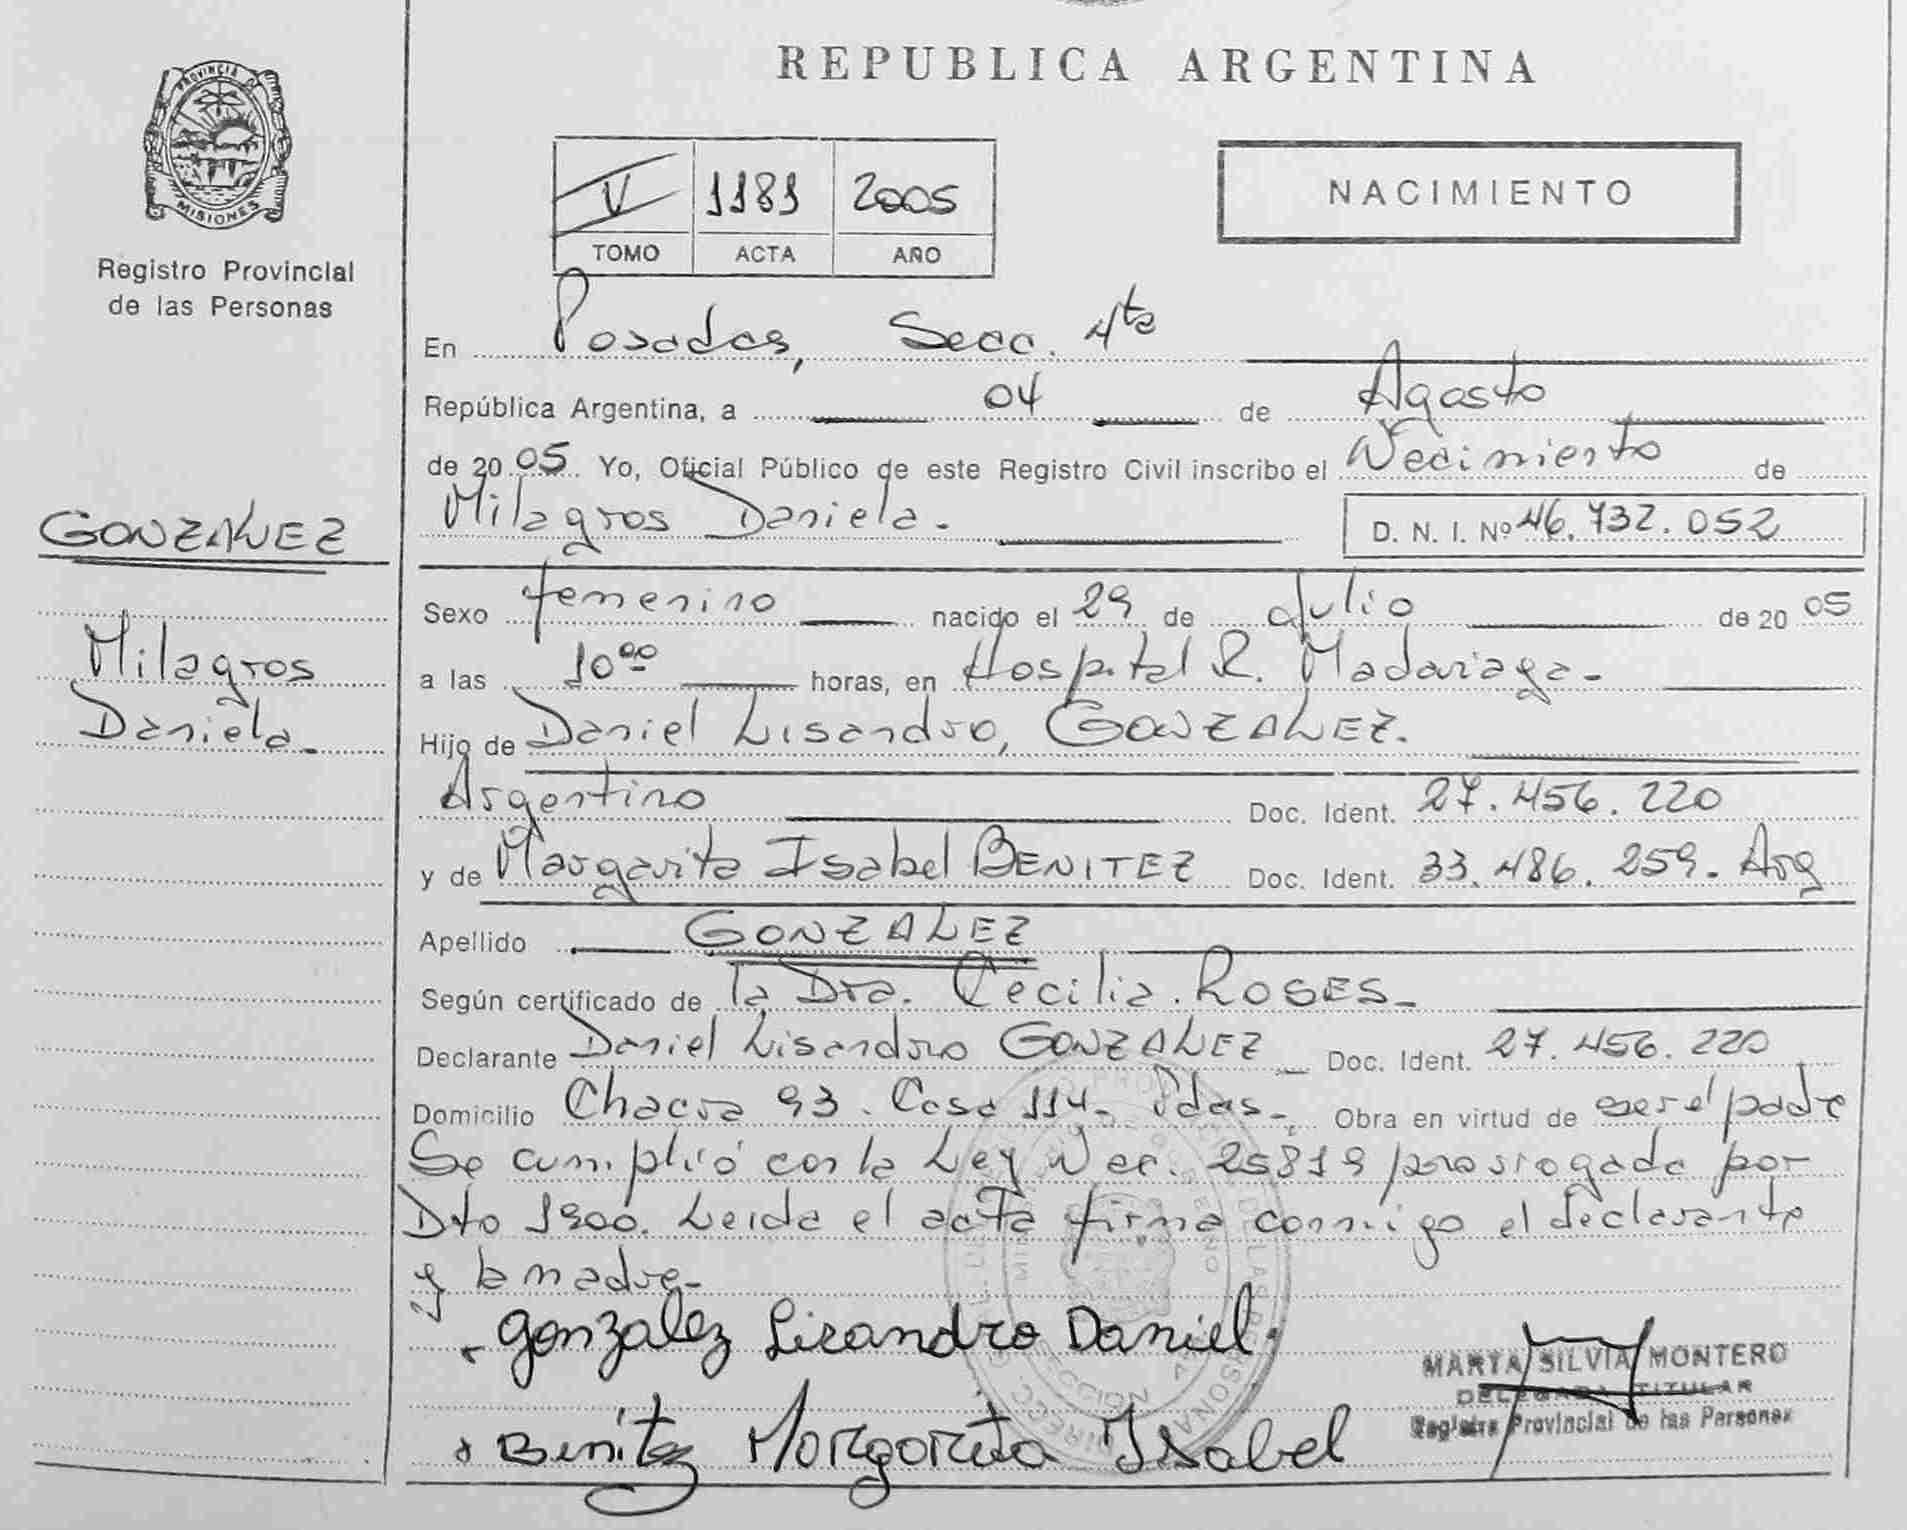 REPUBLICA ARGENTINA
PROVINCIA DE
MISIONES
Registro Provincial
de las Personas
V 1181 2005
TOMO ACTA AÑO
NACIMIENTO
En Posadas, Secc. 4ta
República Argentina, a 04 de Agosto
de 2005 Yo, Oficial Público de este Registro Civil inscribo el Nacimiento de
Milagros Daniela. D. N. I. Nº 46.732.052
GONZALEZ
Milagros
Daniela.
Sexo femenino nacido el 29 de Julio de 20 05
a las 10 00 horas, en Hospital R. Madariaga.
Hijo de Daniel Lisandro, GONZALEZ.
Argentino Doc. Ident. 27.456.220
y de Margarita Isabel BENITEZ Doc. Ident. 33.486.259. Arg
Apellido GONZALEZ
Según certificado de la Dra. Cecilia. ROSES.
Declarante Daniel Lisandro GONZALEZ Doc. Ident. 27.456.220
Domicilio Chacra 93. Casa 114. Pdas. Obra en virtud de ser el padre
Se cumplió con la Ley Nac. 25819 prorrogada por
Dto 1900. Leida el acta firma conmigo el declarante
y la madre.
Gonzalez Lisandro Daniel.
MARTA SILVIA MONTERO
DELEGADA TITULAR
Registro Provincial de las Personas
Benitez Margarita Isabel